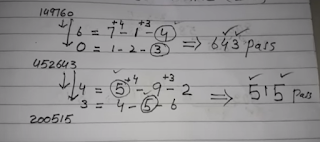 149760
6 = 7 +4 - 1 +3 - 4
0 = 1 - 2 - 3 ⇒ 643 pass
452643
4 = 5 +4 - 9 +3 - 2
3 = 4 - 5 - 6 ⇒ 515 pass
200515